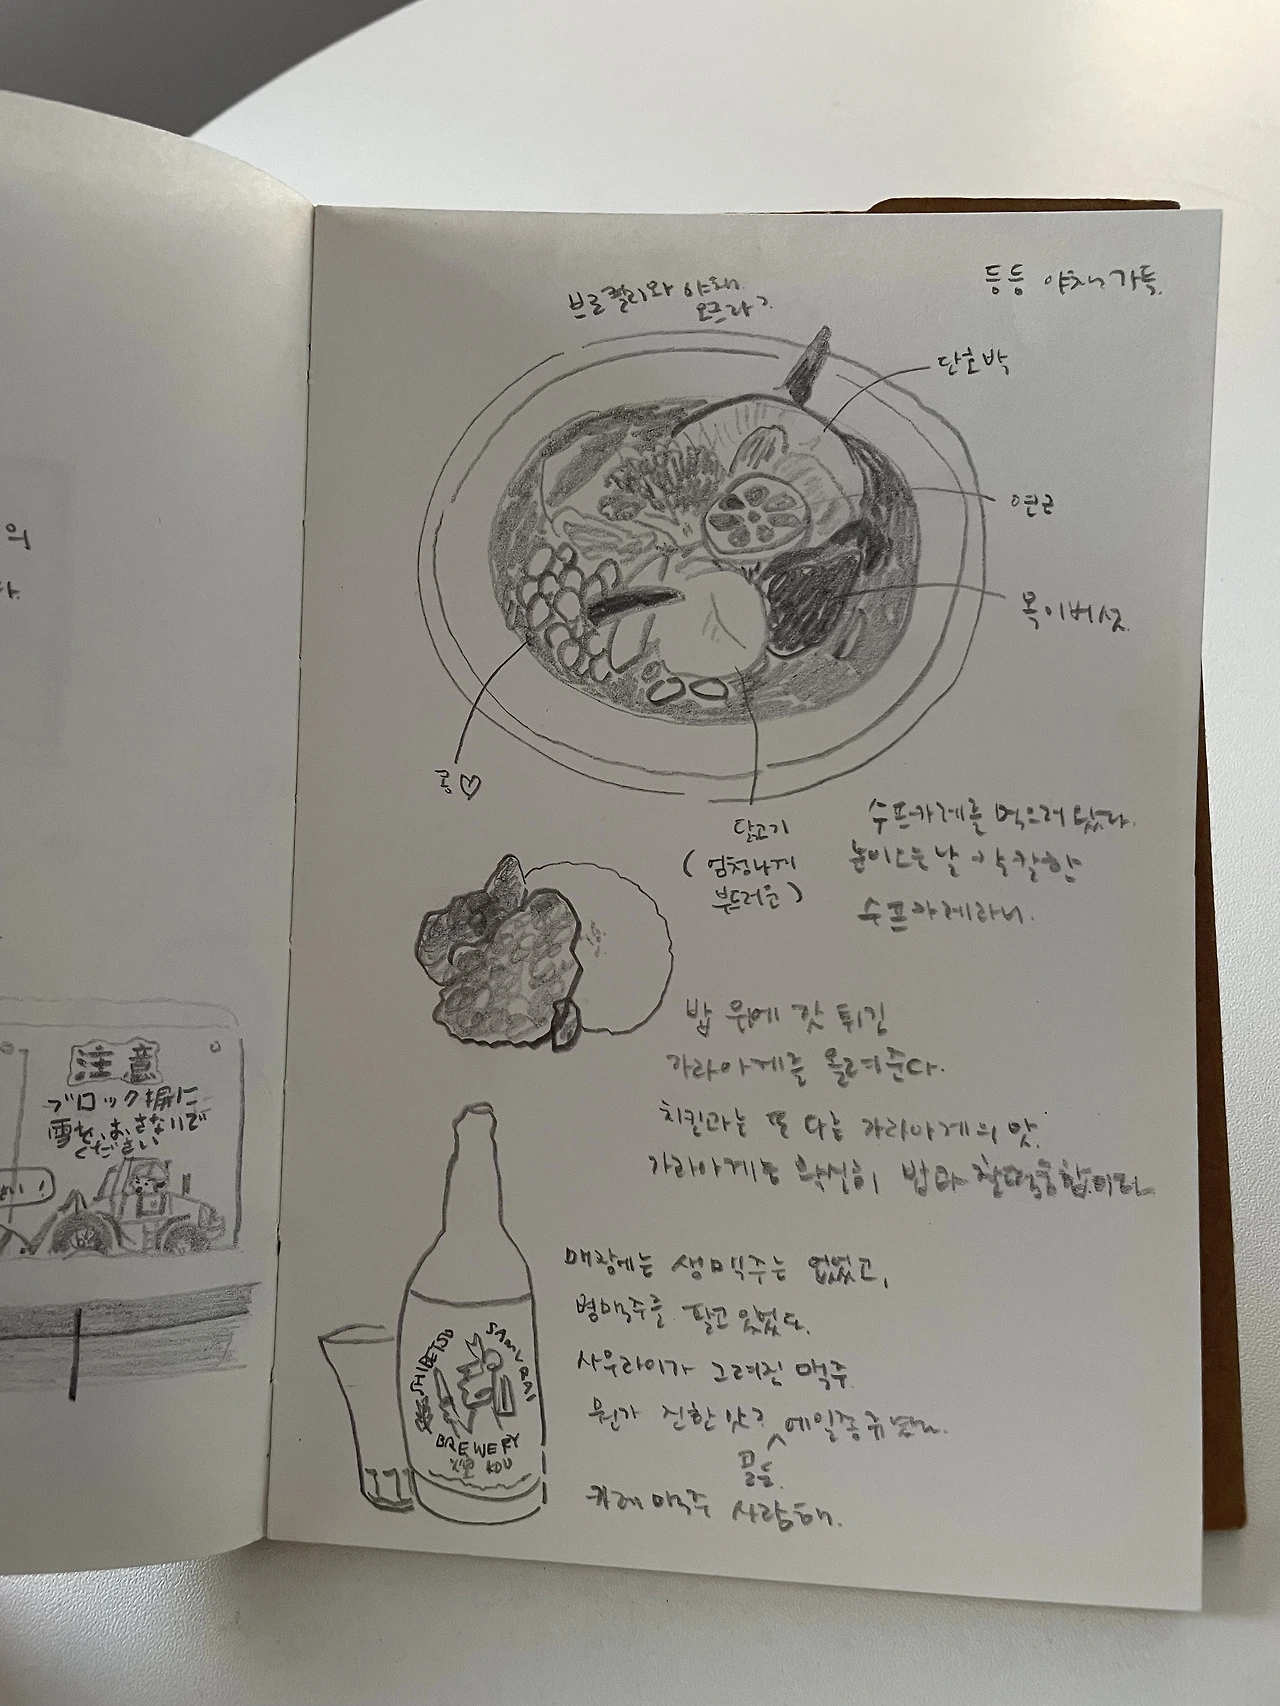 의
다.
注意
ブロック塀に
雪を、おさないで
ください
브로콜리와 야채.
오크라?
등등 야채가득.
단호박
연근
목이버섯.
콩♡
닭고기
(엄청나게
부드러운)
수프카레를 먹으러 왔다.
눈이오는날 칼칼한
수프카레라니.
밥 위에 갓 튀긴
가라아게를 올려준다.
치킨과는 또 다른 가라아게의 맛.
가라아게는 확실히 밥과 찰떡궁합이다.
매장에는 생맥주는 없었고,
병맥주를 팔고 있었다.
사무라이가 그려진 맥주.
뭔가 진한 맛? 에일종류였다.
카레 맥주 사랑해.
SHIBETSU
SAMURAI
BREWERY
KOU